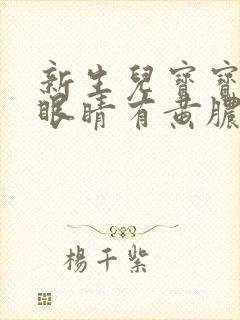 新生兒寶寶
眼睛有黃膿
楊千紫